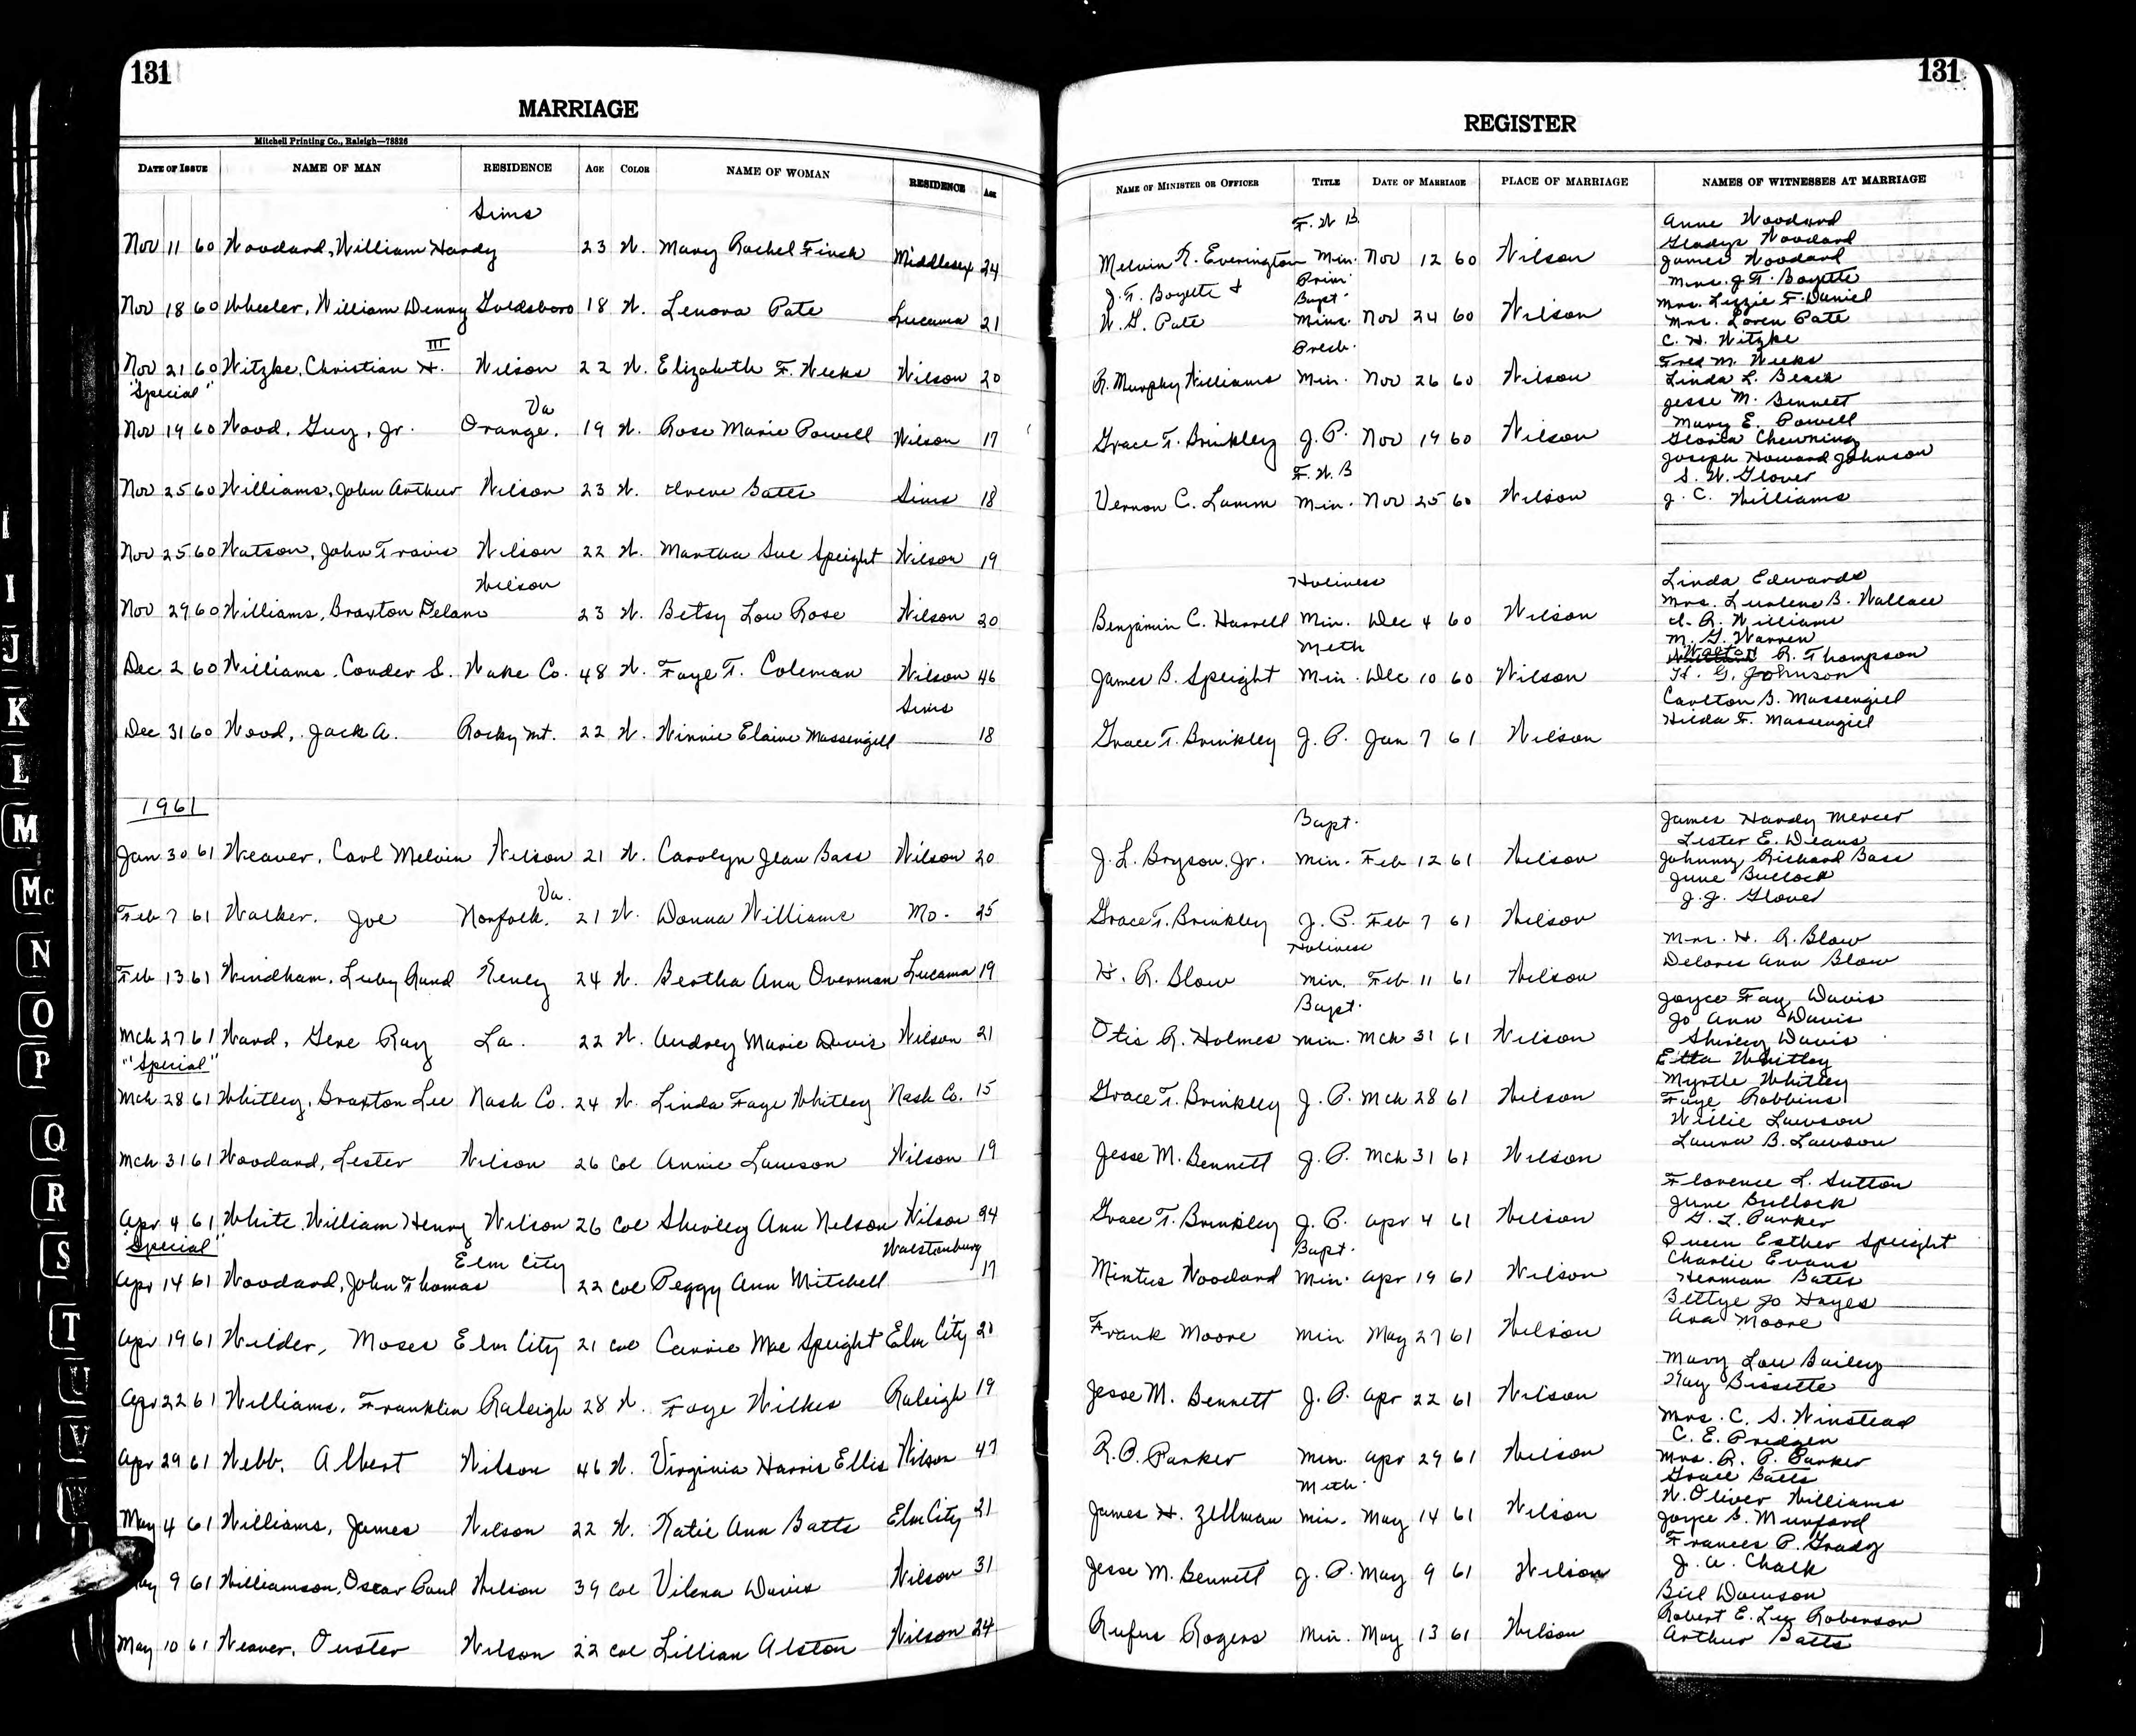 131
131
MARRIAGE
REGISTER
Mitchell Printing Co., Raleigh—78826
DATE OF ISSUE NAME OF MAN RESIDENCE AGE COLOR NAME OF WOMAN RESIDENCE AGE
NAME OF MINISTER OR OFFICER TITLE DATE OF MARRIAGE PLACE OF MARRIAGE NAMES OF WITNESSES AT MARRIAGE
Sims
Nov 11 60 Woodard, William Hardy 23 W. Mary Rachel Finch Middlesex 24
Nov 18 60 Wheeler, William Denny Goldsboro 18 W. Lenora Pate Lucama 21
III
Nov 21 60 Witzke, Christian H. Wilson 22 W. Elizabeth F. Weeks Wilson 20
"Special"
Va
Nov 19 60 Wood, Guy, Jr. Orange, 19 W. Rose Marie Powell Wilson 17
Nov 25 60 Williams, John Arthur Wilson 23 W. Irene Batts Sims 18
Nov 25 60 Watson, John Travis Wilson 22 W. Martha Sue Speight Wilson 19
Wilson
Nov 29 60 Williams, Braxton Delano 23 W. Betsy Lou Rose Wilson 20
Dec 2 60 Williams, Conder S. Wake Co. 48 W. Faye T. Coleman Wilson 46
Sims
Dec 31 60 Wood, Jack A. Rocky Mt. 22 W. Winnie Elaine Massengill 18
1961
Jan 30 61 Weaver, Carl Melvin Wilson 21 W. Carolyn Jean Bass Wilson 20
Va.
Feb 7 61 Walker, Joe Norfolk, 21 W. Donna Williams Mo. 25
Feb 13 61 Windham, Luby Rand Kenly 24 W. Bertha Ann Overman Lucama 19
Mch 27 61 Ward, Gene Ray La. 22 W. Audrey Marie Davis Wilson 21
"Special"
Mch 28 61 Whitley, Braxton Lee Nash Co. 24 W. Linda Faye Whitley Nash Co. 15
Mch 31 61 Woodard, Lester Wilson 26 Col Annie Lawson Wilson 19
Apr 4 61 White, William Henry Wilson 26 Col Shirley Ann Nelson Wilson 24
"Special"
Elm City Walstonburg
Apr 14 61 Woodard, John Thomas 22 Col Peggy Ann Mitchell 17
Apr 19 61 Wilder, Moses Elm City 21 Col Carrie Mae Speight Elm City 21
Apr 22 61 Williams, Franklin Raleigh 28 W. Faye Wilkes Raleigh 19
Apr 29 61 Webb, Albert Wilson 46 W. Virginia Harris Ellis Wilson 47
May 4 61 Williams, James Wilson 22 W. Katie Ann Batts Elm City 21
9 61 Williamson, Oscar Paul Wilson 39 Col Vilena Davis Wilson 31
May 10 61 Weaver, Ouster Wilson 22 Col Lillian Alston Wilson 24
F. W. B.
Melvin R. Everington Min. Nov 12 60 Wilson
Prim
J. F. Boyette + Bapt.
W. G. Pate Mins. Nov 24 60 Wilson
Presb.
R. Murphy Williams Min. Nov 26 60 Wilson
Grace T. Brinkley J. P. Nov 19 60 Wilson
F. W. B
Vernon C. Lamm Min. Nov 25 60 Wilson
Holiness
Benjamin C. Harrell Min. Dec 4 60 Wilson
Meth
James B. Speight Min. Dec 10 60 Wilson
Grace T. Brinkley J. P. Jan 7 61 Wilson
Bapt.
J. L. Bryson, Jr. Min. Feb 12 61 Wilson
Grace T. Brinkley J. P. Feb 7 61 Wilson
Holiness
H. R. Blow Min. Feb 11 61 Wilson
Bapt.
Otis R. Holmes Min. Mch 31 61 Wilson
Grace T. Brinkley J. P. Mch 28 61 Wilson
Jesse M. Bennett J. P. Mch 31 61 Wilson
Grace T. Brinkley J. P. Apr 4 61 Wilson
Bapt.
Mintus Woodard Min. Apr 19 61 Wilson
Frank Moore Min May 27 61 Wilson
Jesse M. Bennett J. P. Apr 22 61 Wilson
R. P. Parker Min. Apr 29 61 Wilson
Meth.
James H. Zellman Min. May 14 61 Wilson
Jesse M. Bennett J. P. May 9 61 Wilson
Rufus Rogers Min. May 13 61 Wilson
Anne Woodard
Gladys Woodard
James Woodard
Mrs. J. F. Boyette
Mrs. Lizzie F. Daniel
Mrs. Loren Pate
C. H. Witzke
Fred M. Weeks
Linda L. Beach
Jesse M. Bennett
Mary E. Powell
Gloria Chewning
Joseph Howard Johnson
S. W. Glover
J. C. Williams
Linda Edwards
Mrs. Lurlene B. Wallace
J. R. Williams
M. G. Warren
Walton R. Thompson
H. G. Johnson
Carlton B. Massengill
Hilda F. Massengill
James Hardy Mercer
Lester E. Deans
Johnny Richard Bass
June Bullock
J. J. Glover
Mrs. H. R. Blow
Delores Ann Blow
Joyce Fay Davis
Jo Ann Davis
Shirley Davis
Etta Whitley
Myrtle Whitley
Faye Robbins
Willie Lawson
Laura B. Lawson
Florence L. Sutton
June Bullock
G. L. Parker
Queen Esther Speight
Charlie Evans
Herman Batts
Bettye Jo Hayes
Ava Moore
Mary Lou Bailey
Kay Bissette
Mrs. C. S. Winstead
C. E. Pridgen
Mrs. R. P. Parker
Grace Batts
W. Oliver Williams
Joyce S. Munford
Frances P. Grady
J. A. Chalk
Bill Dawson
Robert E. Lee Roberson
Arthur Batts
I
J
K
L
M
Mc
N
O
P
Q
R
S
T
U
V
W